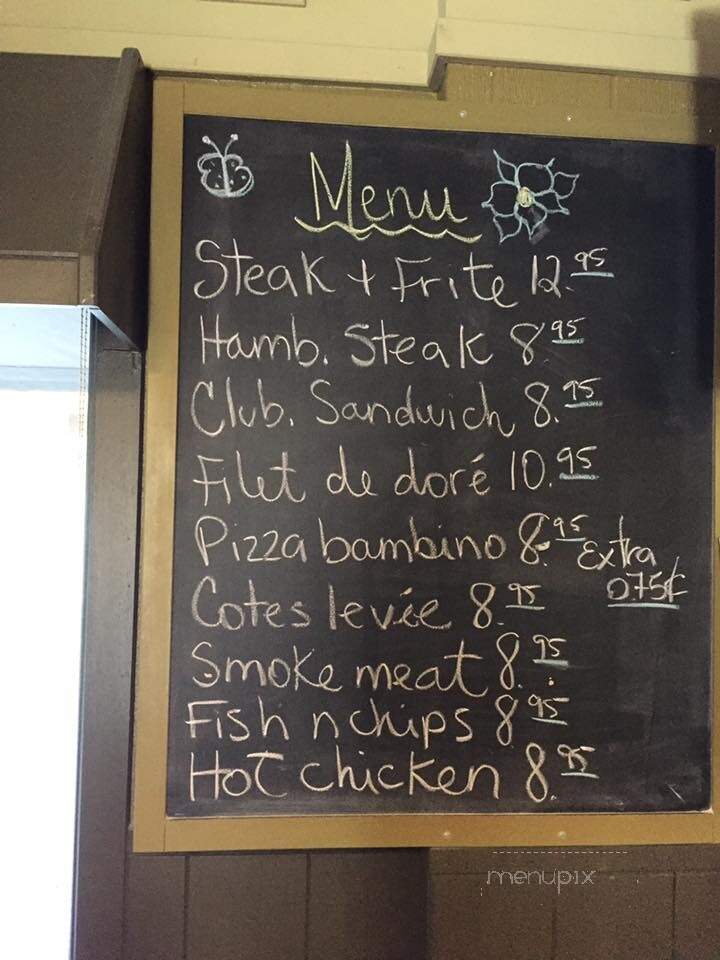 Menu
Steak + Frite 12.95
Hamb. Steak 8.95
Club. Sandwich 8.95
Filet de doré 10.95
Pizza bambino 8.95 Extra
075¢
Cotes levée 8.95
Smoke meat 8.95
Fish n chips 8.95
Hot chicken 8.95
menupix